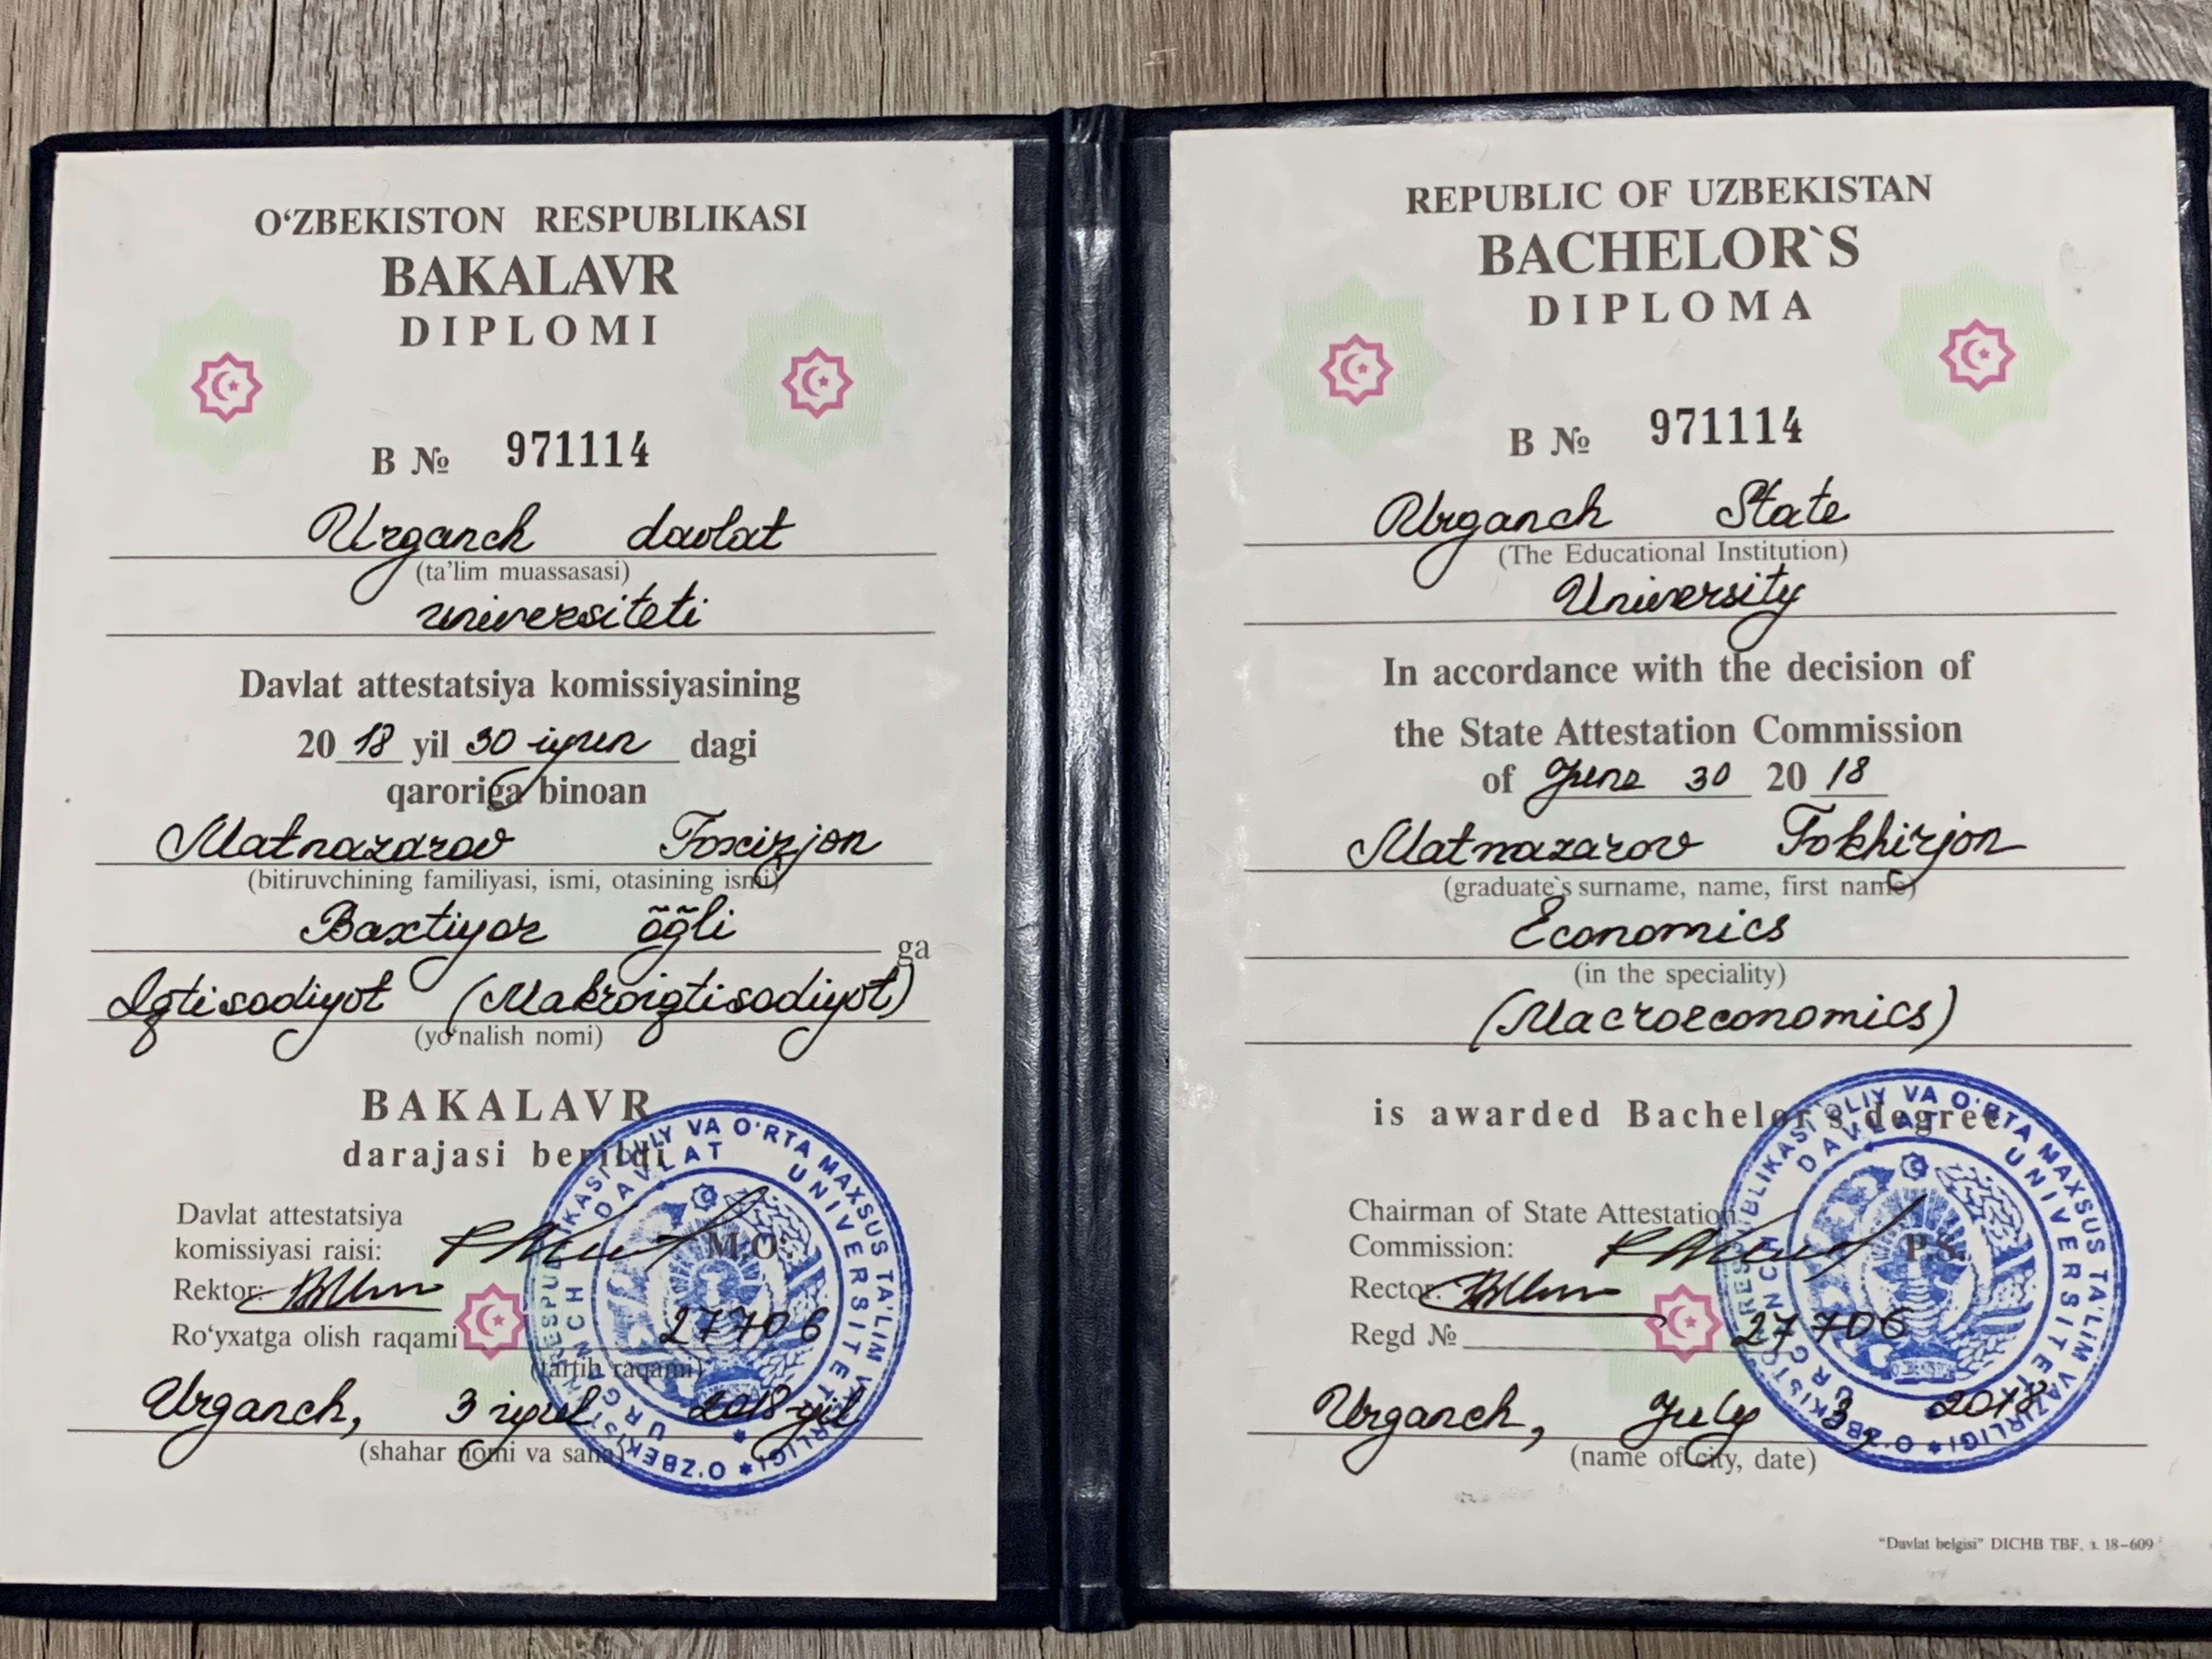 O‘ZBEKISTON RESPUBLIKASI
BAKALAVR
DIPLOMI
B № 971114
Urganch davlat
(ta’lim muassasasi)
universiteti
Davlat attestatsiya komissiyasining
20 18 yil 30 iyun dagi
qaroriga binoan
Matnazarov Toxirjon
(bitiruvchining familiyasi, ismi, otasining ismi)
Baxtiyor o‘g‘li ga
Iqtisodiyot (Makroiqtisodiyot)
(yo‘nalish nomi)
BAKALAVR
darajasi berildi
Davlat attestatsiya
komissiyasi raisi:
Rektor:
M.O‘.
Ro‘yxatga olish raqami 27706
Urganch, 3 iyul 2018 yil
(shahar nomi va sana)
REPUBLIC OF UZBEKISTAN
BACHELOR`S
DIPLOMA
B № 971114
Urganch State
(The Educational Institution)
University
In accordance with the decision of
the State Attestation Commission
of June 30 20 18
Matnazarov Tokhirjon
(graduate`s surname, name, first name)
Economics
(in the speciality)
(Macroeconomics)
is awarded Bachelor`s degree
Chairman of State Attestation
Commission:
Rector:
P.S.
Regd № 27706
Urganch, July 3 2018
(name of city, date)
"Davlat belgisi" DICHB TBF, з. 18–609